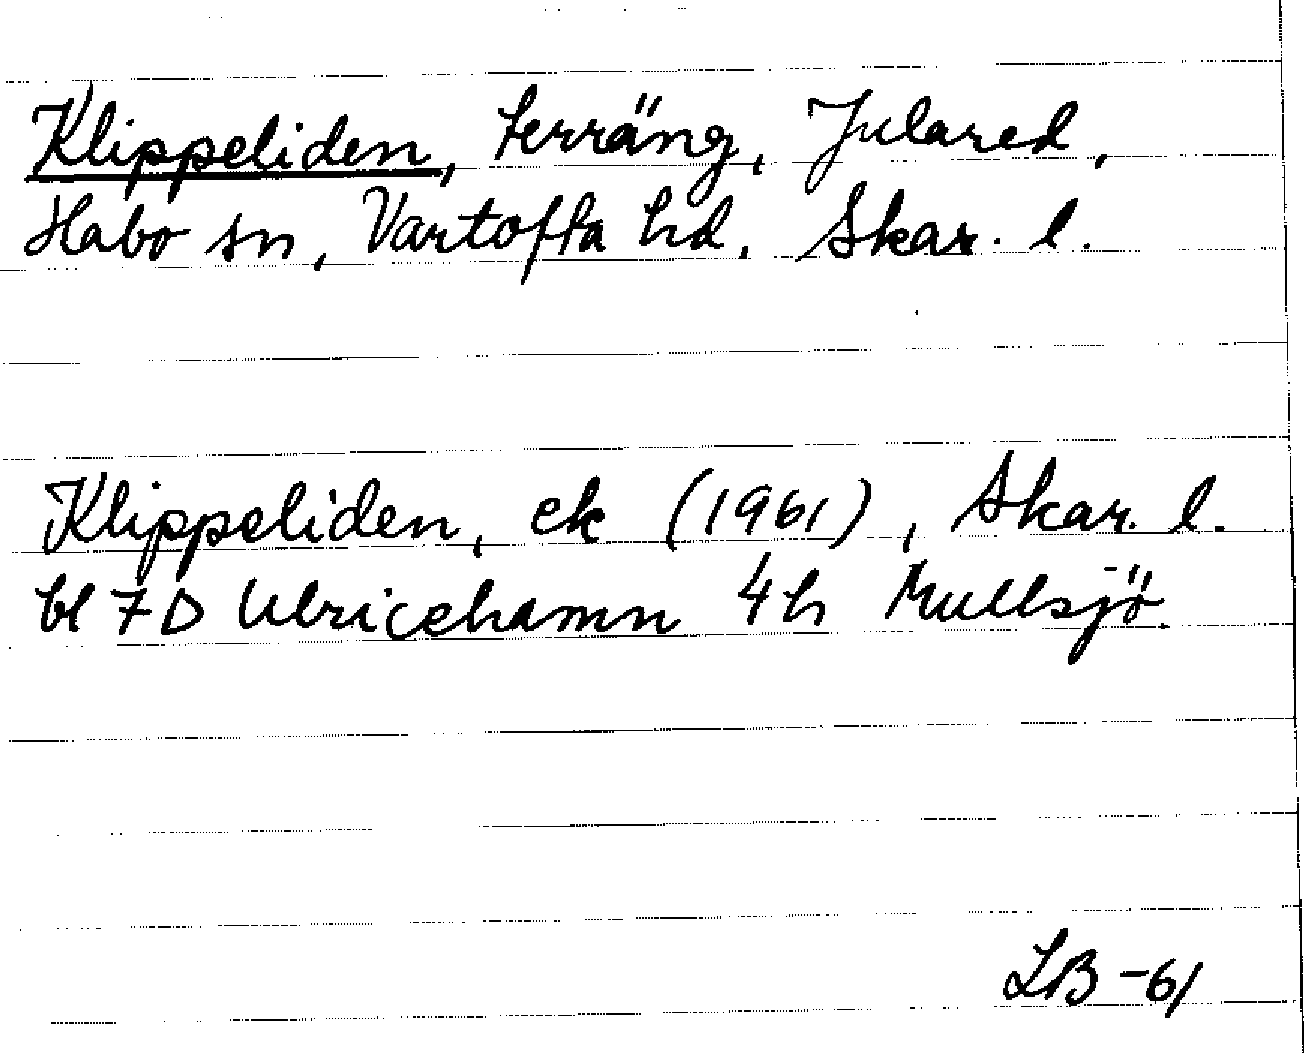 Klippeliden, terräng, Julared,
Habo sn, Vartofta hd. Skar. l.
Klippeliden, ek (1961), Skar. l.
bl 7D Ulricehamn 4h Mullsjö.
LB-61